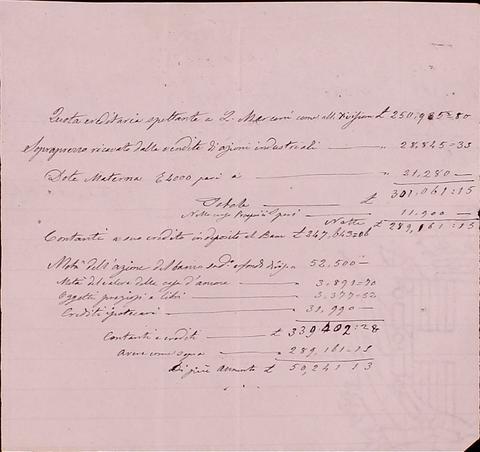 Quota ereditaria spettante a L. Marconi come all. Divisione £ 250,935=80
Soprapprezzo ricavato dalla vendita d'azioni industriali — " 28,845=35
Dote Materna £4000 pari a — " 21,280 —
Totale — £ 301,061:15
11,900 —
Nette £ 289,161:15
Contanti a suo credito in deposito al Banco £ 247,643=06
Metà dell'azione del banco 52,500 —
Metà del valore delle 3,891=70
Oggetti preziosi e libri — 3,377=52
Crediti ipotecari — 31,990 —
£ 339,402=28
Contanti e crediti —
Avere come sopra — 289,161=15
Di più aumento £ 50,241 13